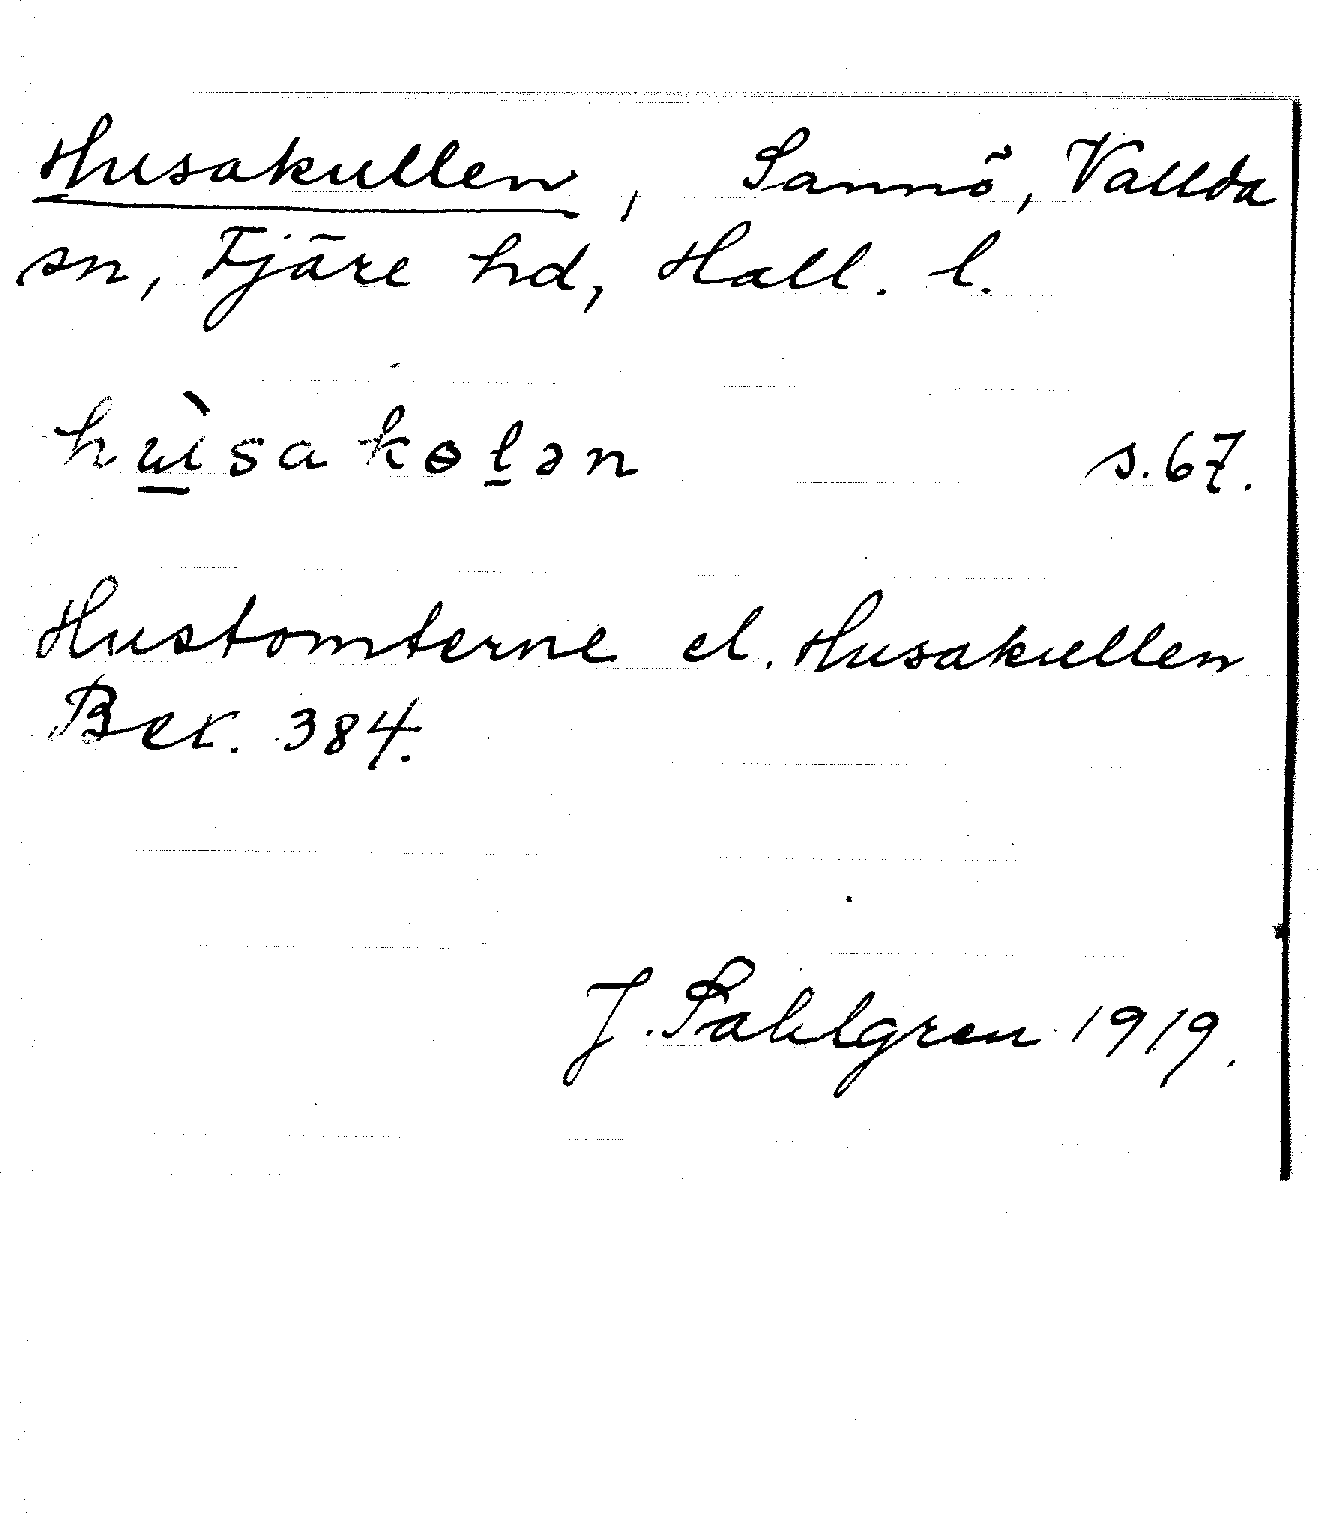 Husakullen, Sannö, Vallda
sn, Fjäre hd, Hall. l.
hùsakɵlən s.67.
Hustomterne el. Husakullen
Bex. 384.
J. Sahlgren 1919.